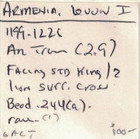 ARMENIA, LEVON I
1199-1226
AR Tram (2.9)
Facing STD King /
2 lion surr. cross
Bed. 244(a)-
rare (1)
100-